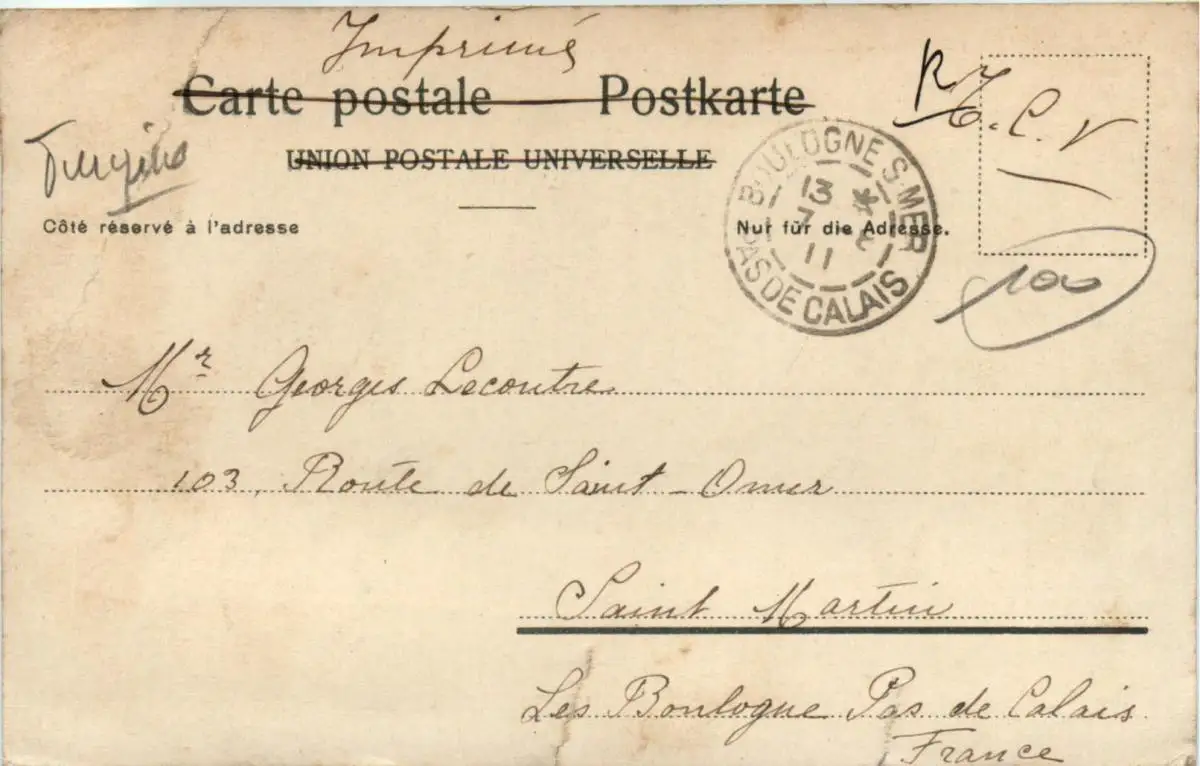 Imprimé
Carte postale — Postkarte
UNION POSTALE UNIVERSELLE
T.C.V
Côté réservé à l'adresse
Nur für die Adresse.
BOULOGNE S-MER
13
7
11
PAS DE CALAIS
100
Mr Georges Lecoutre
103, Route de Saint-Omer
Saint Martin
Les Boulogne Pas de Calais
France